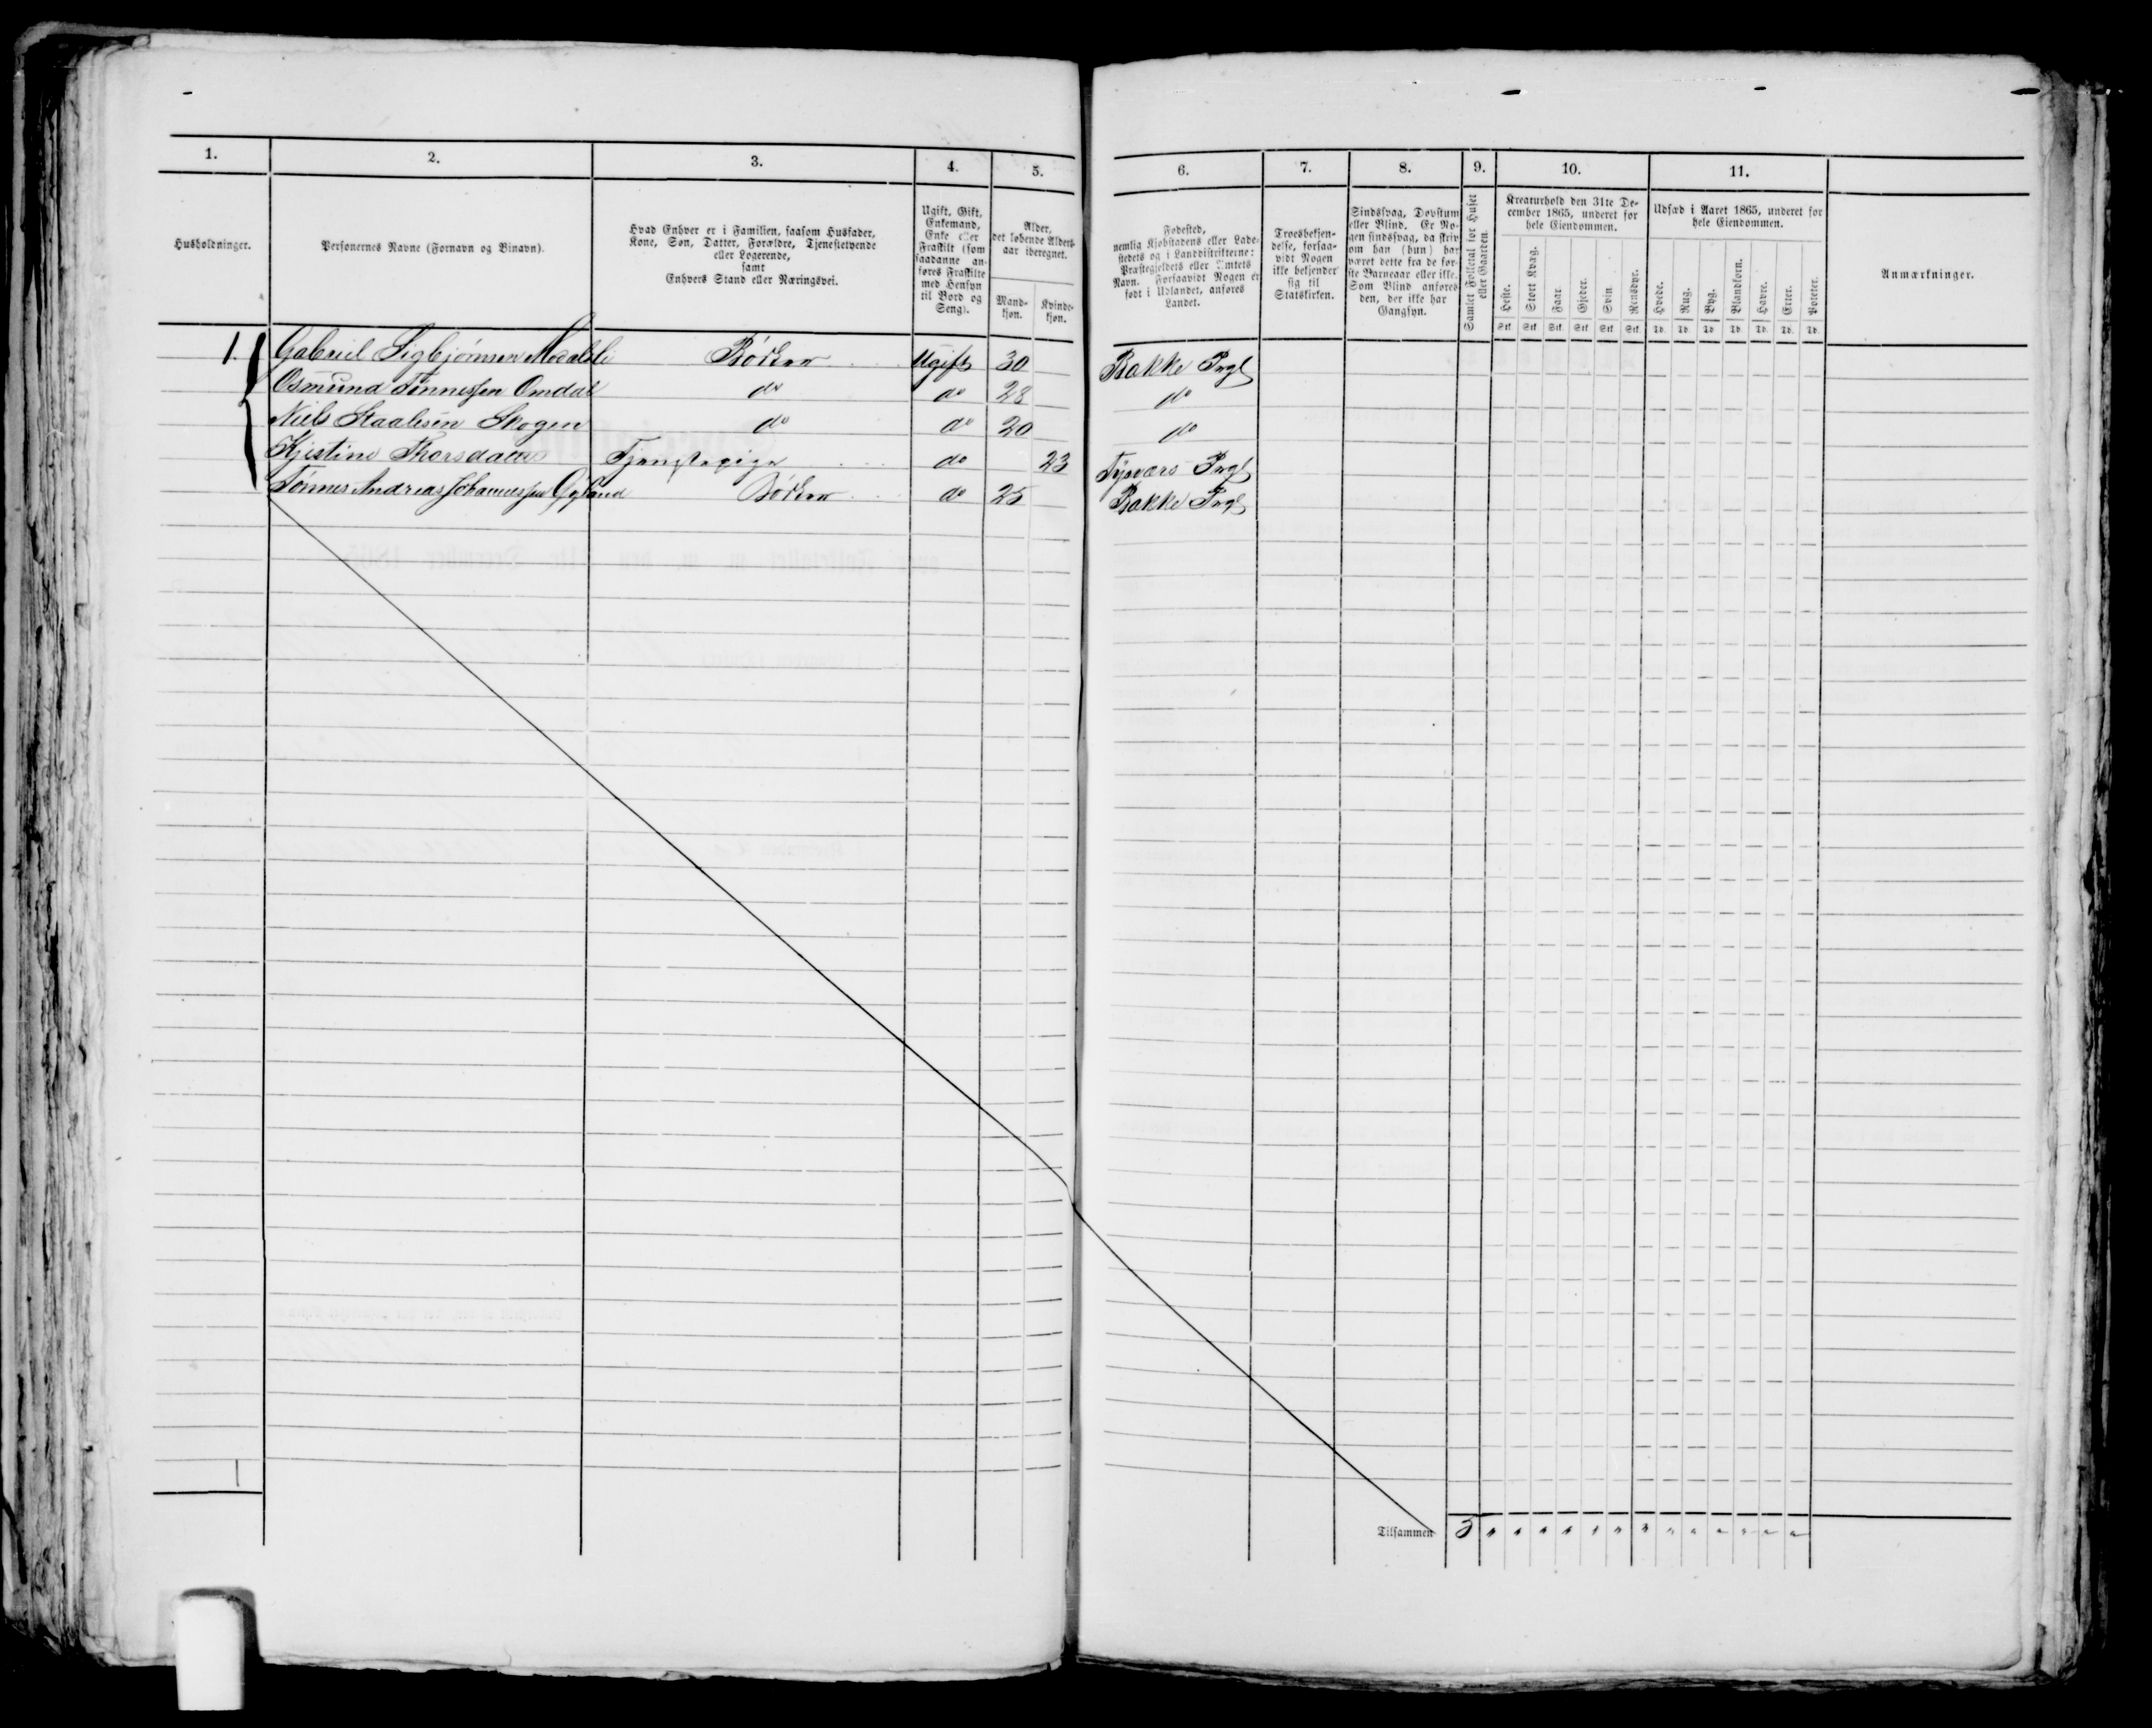 1. 2. 3. 4. 5. 6. 7. 8. 9. 10. 11.
Husholdninger.
Personernes Navne (Fornavn og Binavn).
Hvad Enhver er i Familien, saasom Husfader,
Kone, Søn, Datter, Forældre, Tjenestetyende
eller Logerende,
samt
Enhvers Stand eller Næringsvei.
Ugift, Gift,
Enkemand,
Enke eller
Fraskilt (som
saadanne an-
føres Fraskilte
med Hensyn
til Bord og
Seng).
Alder,
det løbende Alders-
aar iberegnet.
Mand-
kjøn.
Kvinde-
kjøn.
Fødested,
nemlig Kjøbstadens eller Lade-
stedets og i Landdistrikterne:
Præstegjeldets eller Amtets
Navn. Forsaavidt Nogen er
født i Udlandet, anføres
Landet.
Troesbekjen-
delse, forsaa-
vidt Nogen
ikke bekjender
sig til
Statskirken.
Sindssvag, Døvstum
eller Blind. Er No-
gen sindssvag, da skriv
om han (hun) har
været dette fra de før-
ste Barneaar eller ikke.
Som Blind anføres
den, der ikke har
Gangsyn.
Samlet Folketal for Huset
eller Gaarden.
Kreaturhold den 31te De-
cember 1865, underet for
hele Eiendommen.
Heste. Stort Kvæg. Faar. Gjeder. Svin. Rensdyr.
Stk. Stk. Stk. Stk. Stk. Stk.
Udsæd i Aaret 1865, underet for
hele Eiendommen.
Hvede. Rug. Byg. Blandkorn. Havre. Erter. Poteter.
Td. Td. Td. Td. Td. Td. Td.
Anmærkninger.
1. Gabriel Sigbjørnsen Modalsli Bødker Ugift 30 Bakke Prgl
Osmund Tønnessen Omdal do do 28 do
Niels Staalesen Skogen do do 20 do
Kjistine Thorsdatter Tjenstepige do 23 Tysvær Prgl
Tønnes Andreas Johannessen Gyland Bødker do 25 Bakke Prgl
1
Tilsammen 5 " " " " " " " " " " " " "